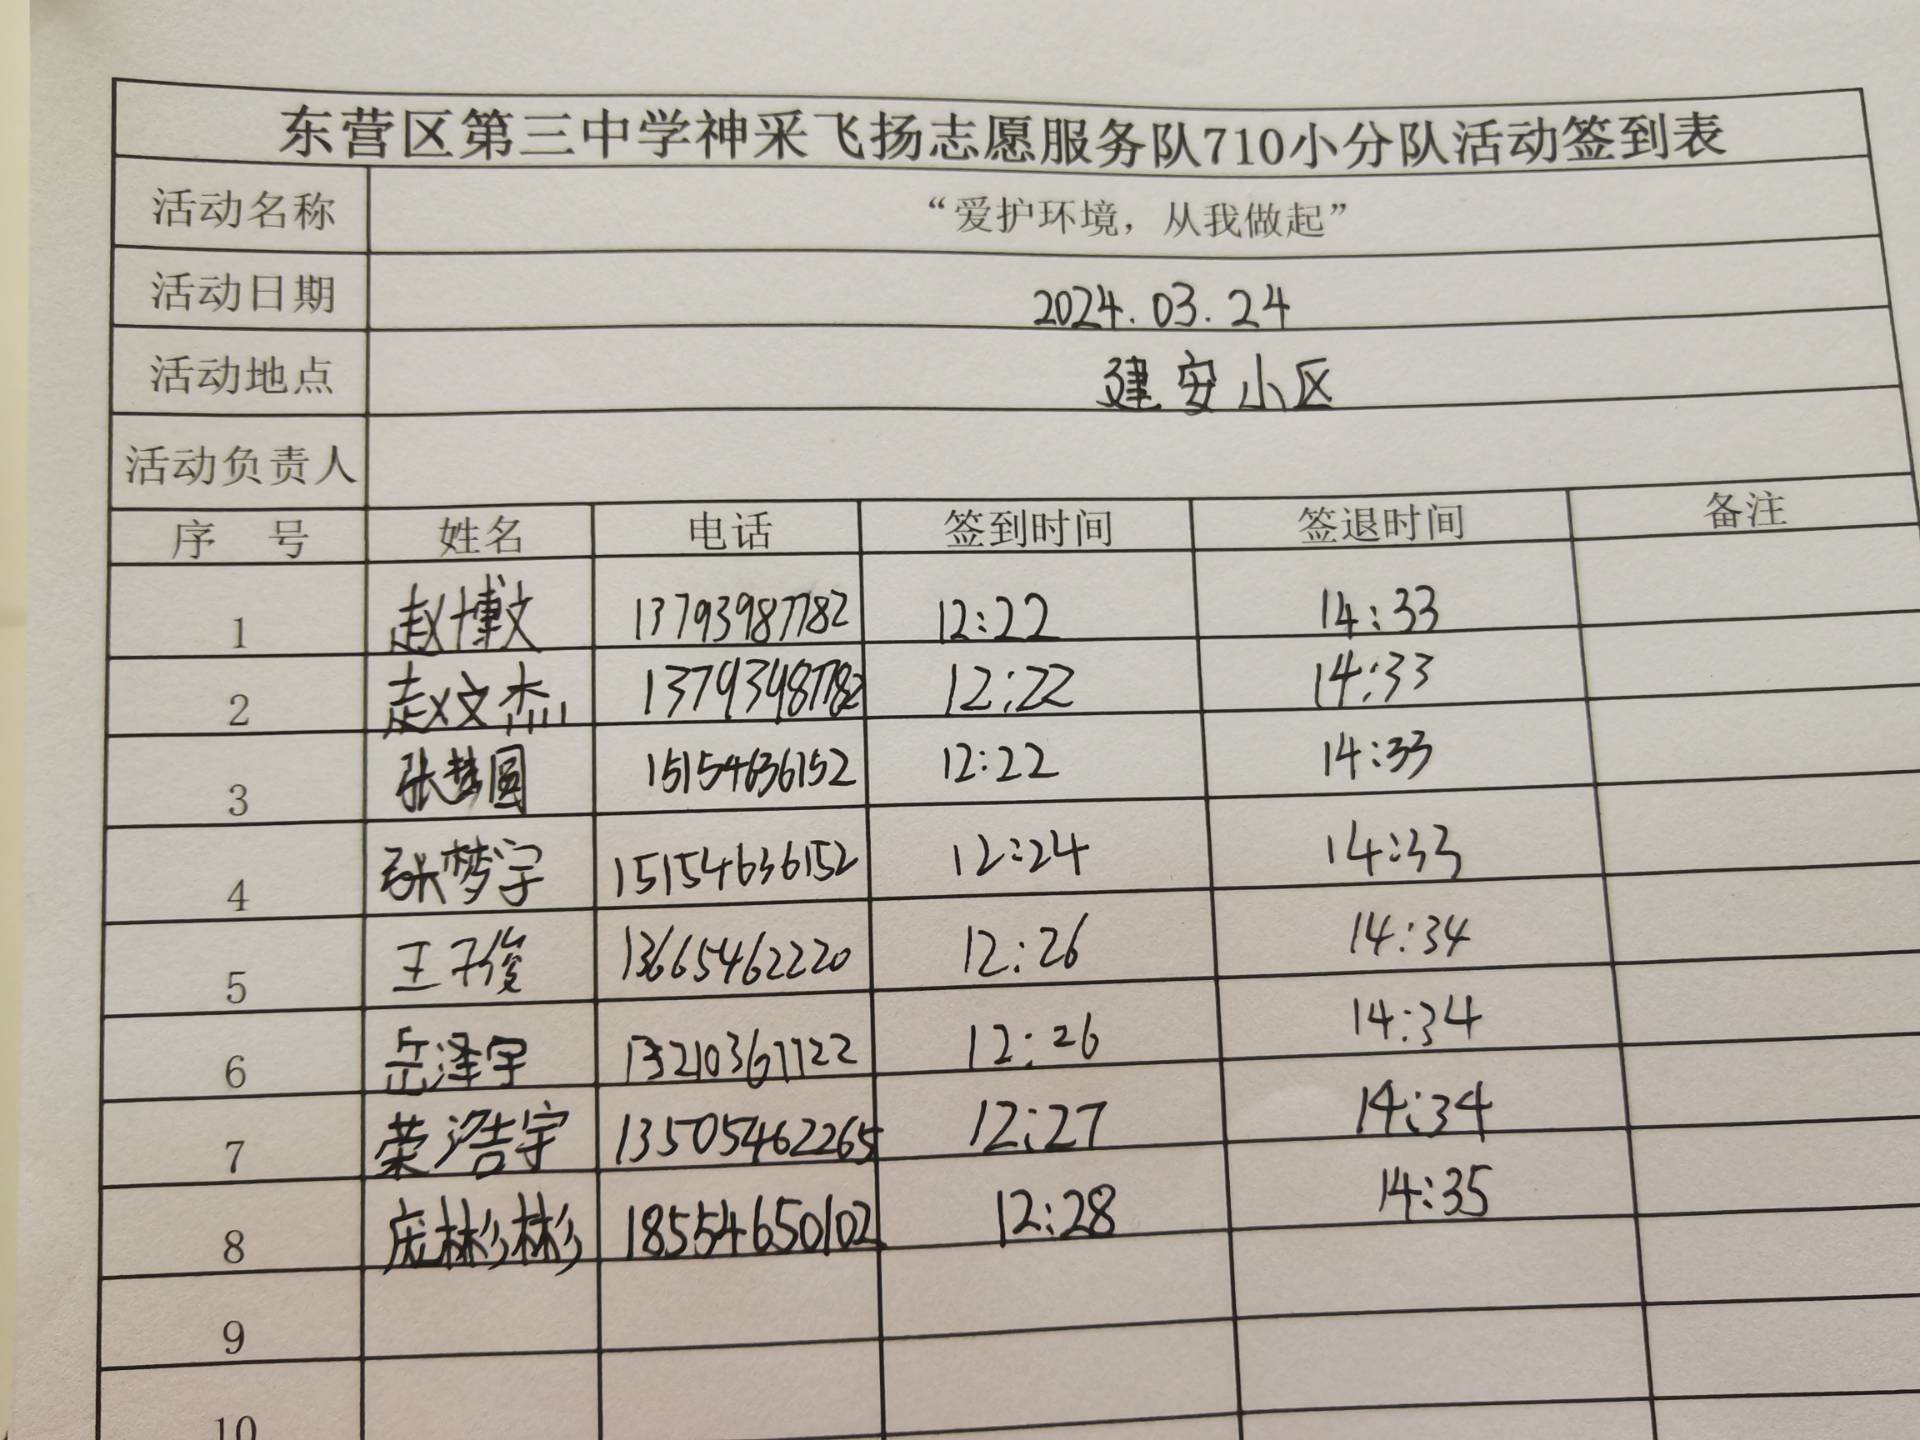 东营区第三中学神采飞扬志愿服务队710小分队活动签到表
活动名称 “爱护环境，从我做起”
活动日期 2024.03.24
活动地点 建安小区
活动负责人
序 号 姓名 电话 签到时间 签退时间 备注
1 赵博文 13793987782 12:22 14:33
2 赵文杰 13793987782 12:22 14:33
3 张梦圆 15154636152 12:22 14:33
4 张梦宇 15154636152 12:24 14:33
5 王子俊 13665462220 12:26 14:34
6 岳泽宇 13210367122 12:26 14:34
7 荣浩宇 13505462265 12:27 14:34
8 庞彬彬 18554650102 12:28 14:35
9
10